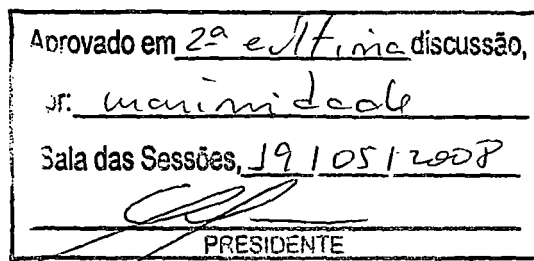 Aprovado em 2ª e última discussão,
por: unanimidade
Sala das Sessões, 19 / 05 / 2008
PRESIDENTE